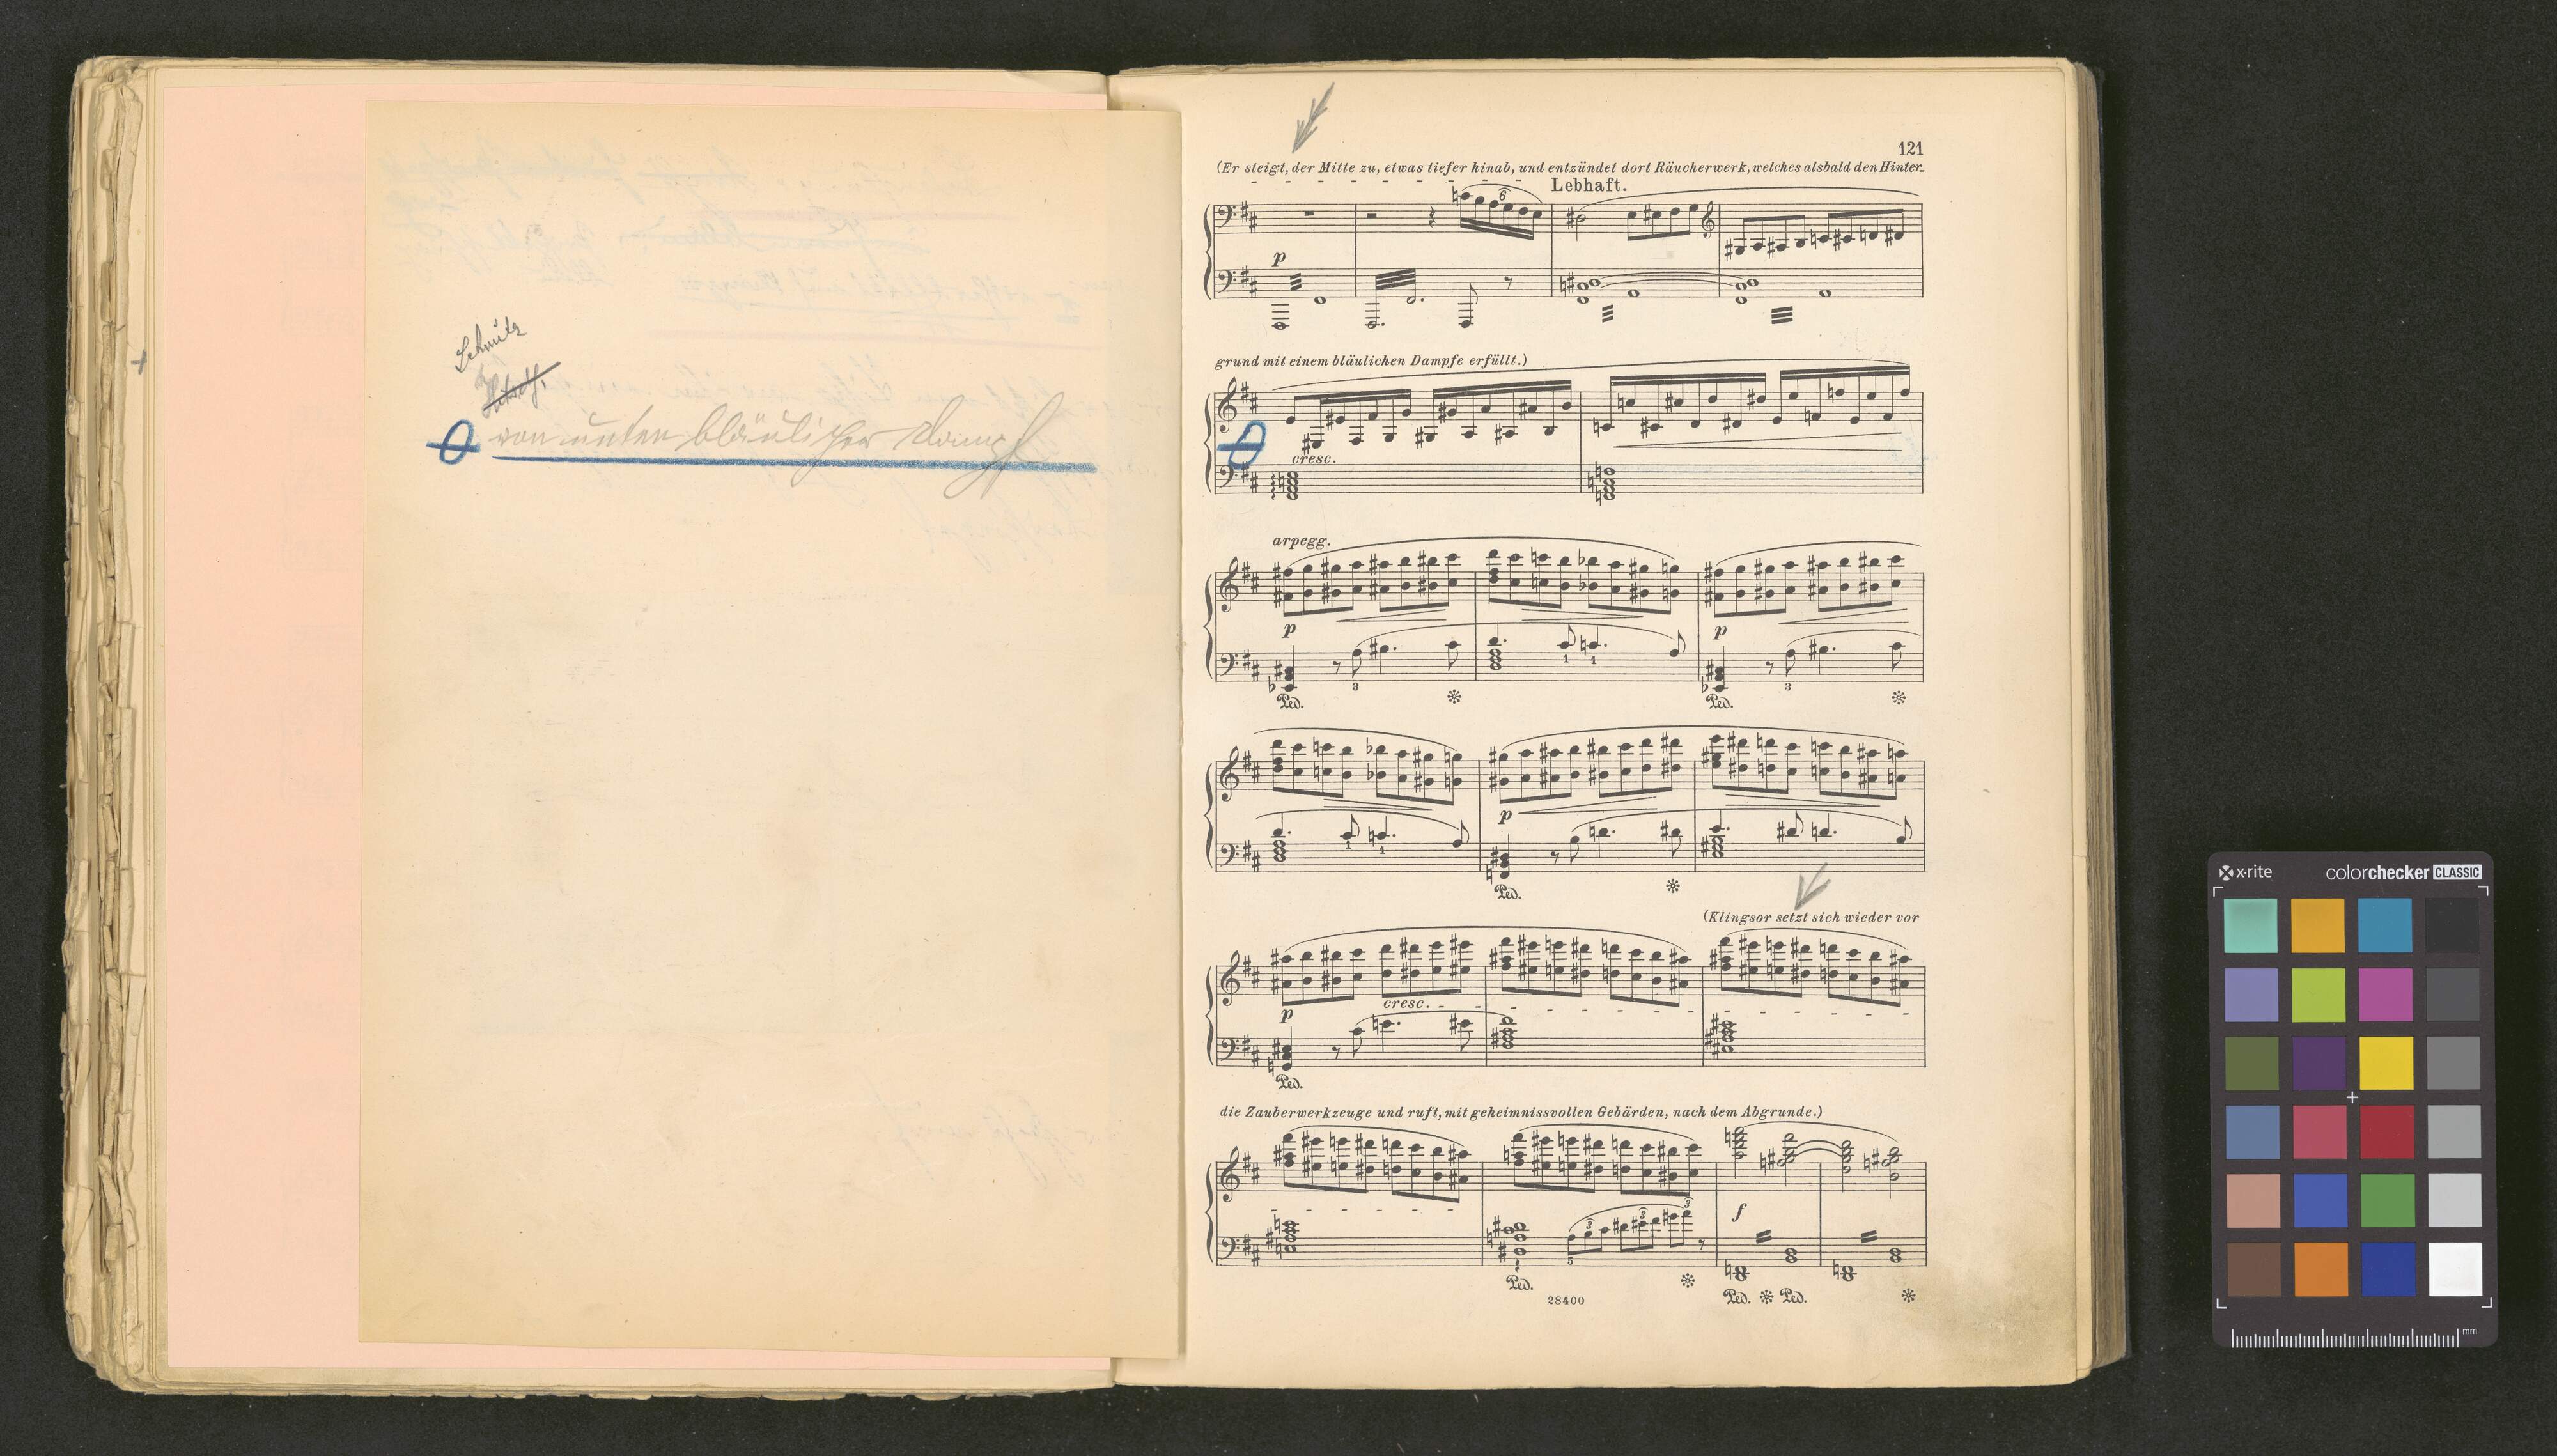 Schmitz
von unten bläulicher Dampf
121
(Er steigt, der Mitte zu, etwas tiefer hinab, und entzündet dort Räucherwerk, welches alsbald den Hinter-
Lebhaft.
6
p
grund mit einem bläulichen Dampfe erfüllt.)
cresc.
arpegg.
p p
3 1 1 3
Ped. Ped.
p
1 1
Ped.
(Klingsor setzt sich wieder vor
cresc.
p
Ped.
die Zauberwerkzeuge und ruft, mit geheimnissvollen Gebärden, nach dem Abgrunde.)
3 3 3
f
5
Ped. Ped. Ped.
28400
x-rite colorchecker CLASSIC
mm